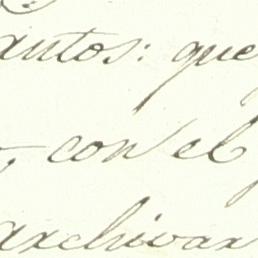 autos: que
con el
archivar